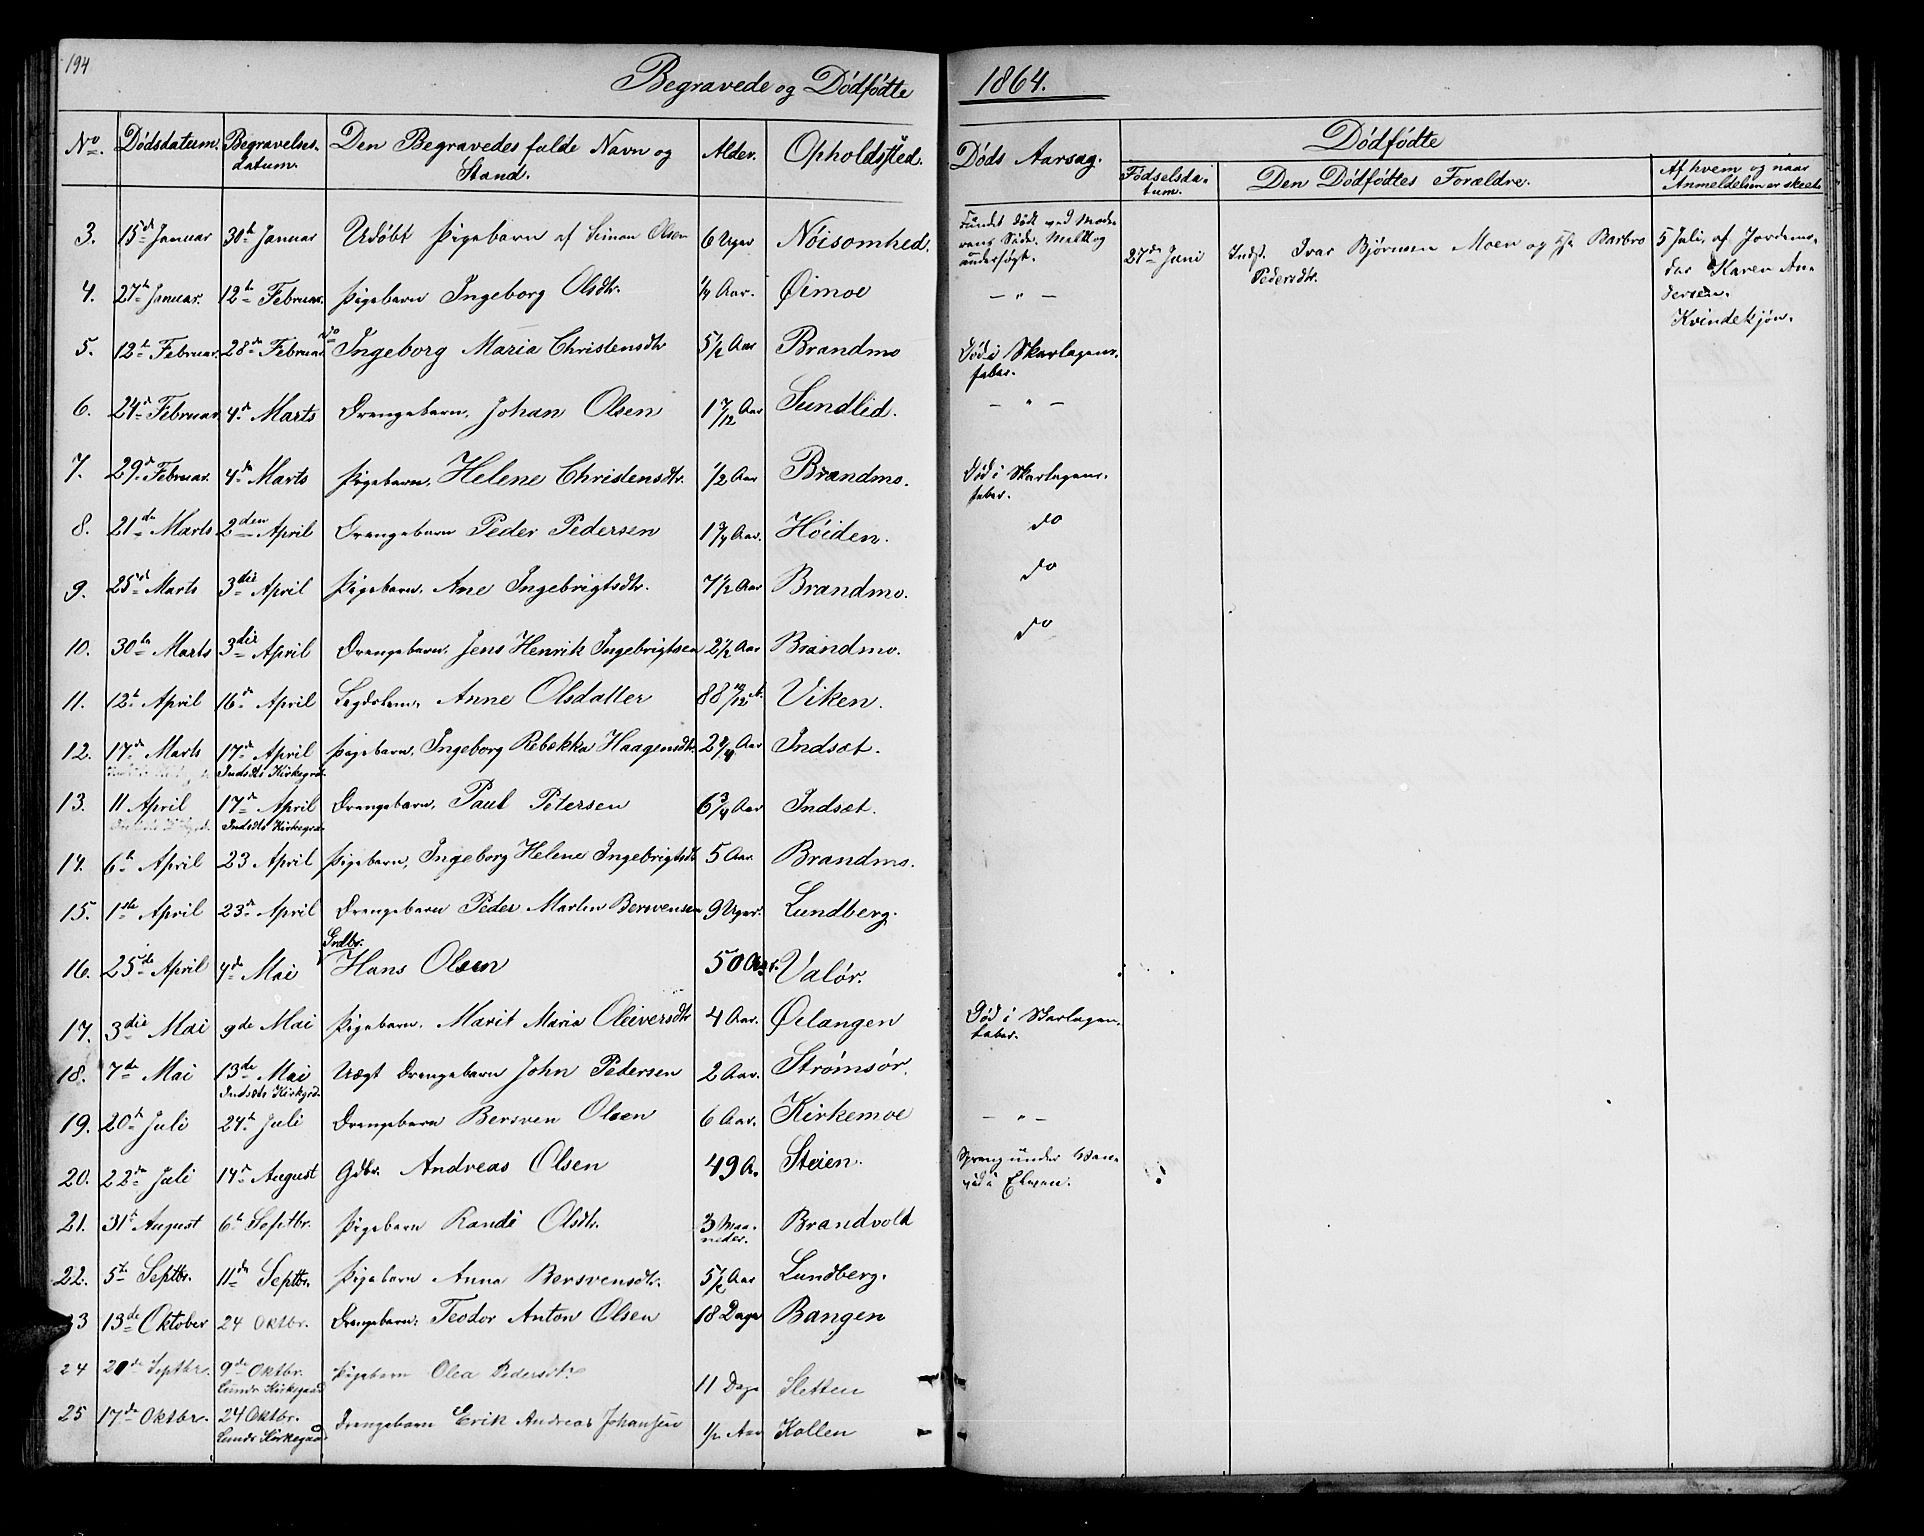 194
Begravede og Dödfödte 1864.
No. Dödsdatum. Begravelses- datum. Den Begravedes fulde Navn og Stand. Alder. Opholdssted. Döds Aarsag.
Dödfödte
Födselsda- tum. Den Dödfödtes Forældre. Af hvem og naar Anmeldelsen er skeet.
3. 15de Januar 30te Januar Udöbt Pigebarn af Simon Olsen 6 Uger Nöisomhed. Fundet död ved Mode- rens Side. Meldt og undersögt.
27de Juni Inds. Ivar Björnsen Moen og Barbro Pedersdtr. 5 Juli, af Jordemo- der Karen An- dersen. Kvindekjön.
4. 27de Januar. 12te Februar. Pigebarn Ingeborg Olsdtr. 1/4 Aar. Øimoe – " –
5. 12te Februar. 28de Februar do Ingeborg Maria Christensdtr 5 1/2 Aar Brandmo Död i Skarlagens- feber.
6. 24de Februar. 4de Marts Drengebarn. Johan Olsen 1 7/12 Aar Sundlid. – " –
7. 29de Februar. 4de Marts Pigebarn. Helene Christensdtr. 1/2 Aar Brandmo. Död i Skarlagens- feber.
8. 21de Marts 2den April Drengebarn Peder Pedersen 1 3/4 Aar. Höiden. do
9. 25de Marts 3die April Pigebarn. Ane Ingebrigtsdtr. 7 1/2 Aar Brandmo. do
10. 30te Marts 3die April Drengebarn. Jens Henrik Ingebrigtsen 2 1/2 Aar Brandmo. do
11. 12te April 16de April Legdslem. Anne Olsdatter 88 10/12 A. Viken.
12. 17de Marts 17de April Pigebarn. Ingeborg Rebekka Haagensdtr. 2 3/4 Aar Indset.
Indsets Kirkegrd.
13. 11 April 17de April Drengebarn. Paul Petersen 6 3/4 Aar Indset.
Indsets Kirkegrd.
14. 6te April 23 April Pigebarn, Ingeborg Helene Ingebrigtsdtr 5 Aar. Brandmo.
15. 1ste April 23de April Drengebarn Peder Martin Bersvensen 9 Uger. Lundberg.
16. 25de April 4de Mai Grdbr. Hans Olsen 50 Aar. Valör.
17. 3die Mai 9de Mai Pigebarn. Marit Maria Oleiversdtr 4 Aar. Ørlangen Död i Skarlagen- feber.
18. 7de Mai 13de Mai Uægt Drengebarn John Pedersen 2 Aar. Strömsör.
Indsets Kirkegrd.
19. 20de Juli 24de Juli Drengebarn Bersven Olsen 6 Aar. Kirkemoe – " –
20. 22de Juli 14de August Gdbr. Andreas Olsen 49 A. Steien. Sprang under Van- vid i Elven.
21. 31te August 6te Septbr. Pigebarn Randi Olsdtr. 3 Maa- neder. Brandvold
22. 5te Septbr. 11de Septbr. Pigebarn Anna Bersvensdtr. 5 1/2 Aar Lundberg.
23 13de Oktober 24 Oktbr. Drengebarn. Teodor Anton Olsen 18 Dage Bangen
24 20de Septbr. 9de Oktbr. Pigebarn Olea Pedersdtr. 11 Dage Sletten
Lunds Kirkegaard
25 17de Oktbr. 24 Oktbr. Drengebarn Erik Andreas Johansen 1/2 Aar Kollen
Lunds Kirkegaard